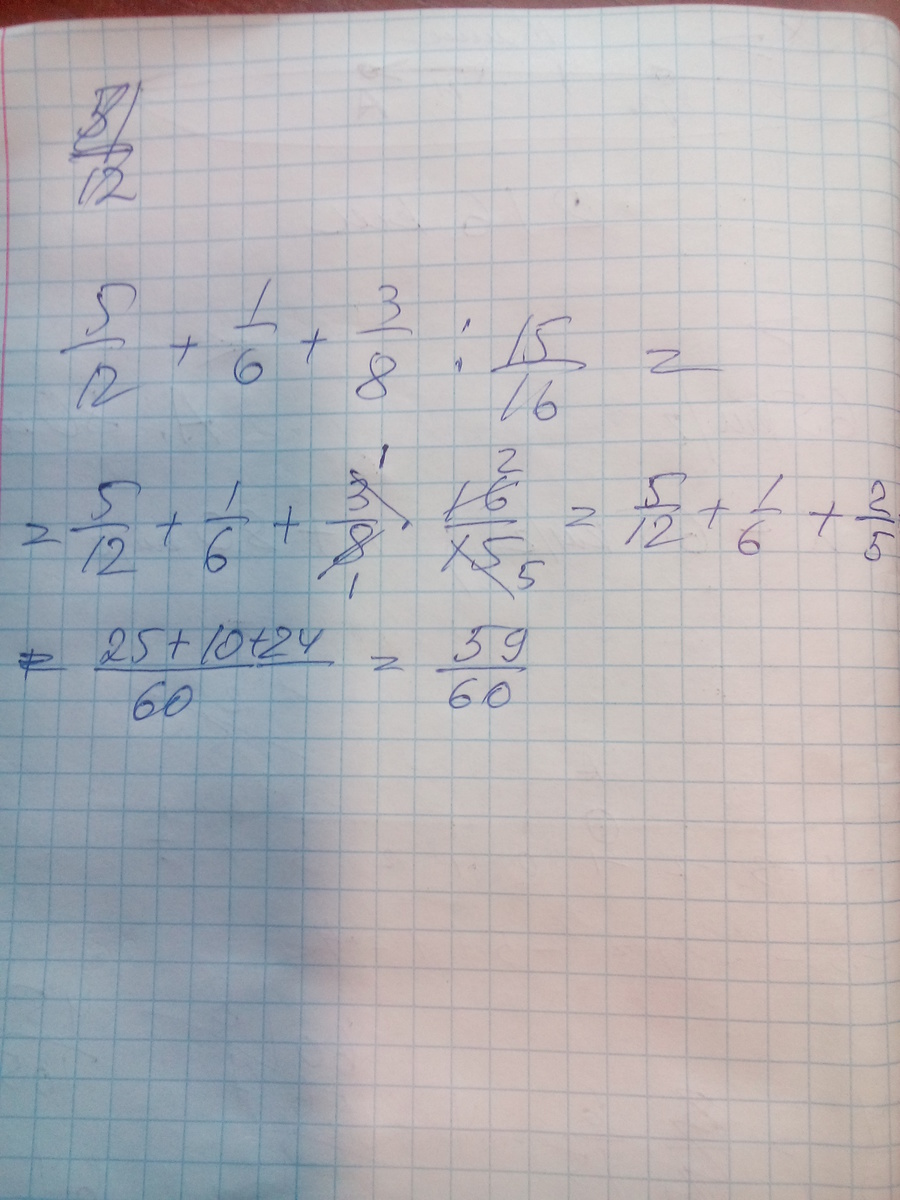 5/12
5/12 + 1/6 + 3/8 : 15/16 =
= 5/12 + 1/6 + 3/8 · 16/15 = 5/12 + 1/6 + 2/5
= (25+10+24)/60 = 59/60